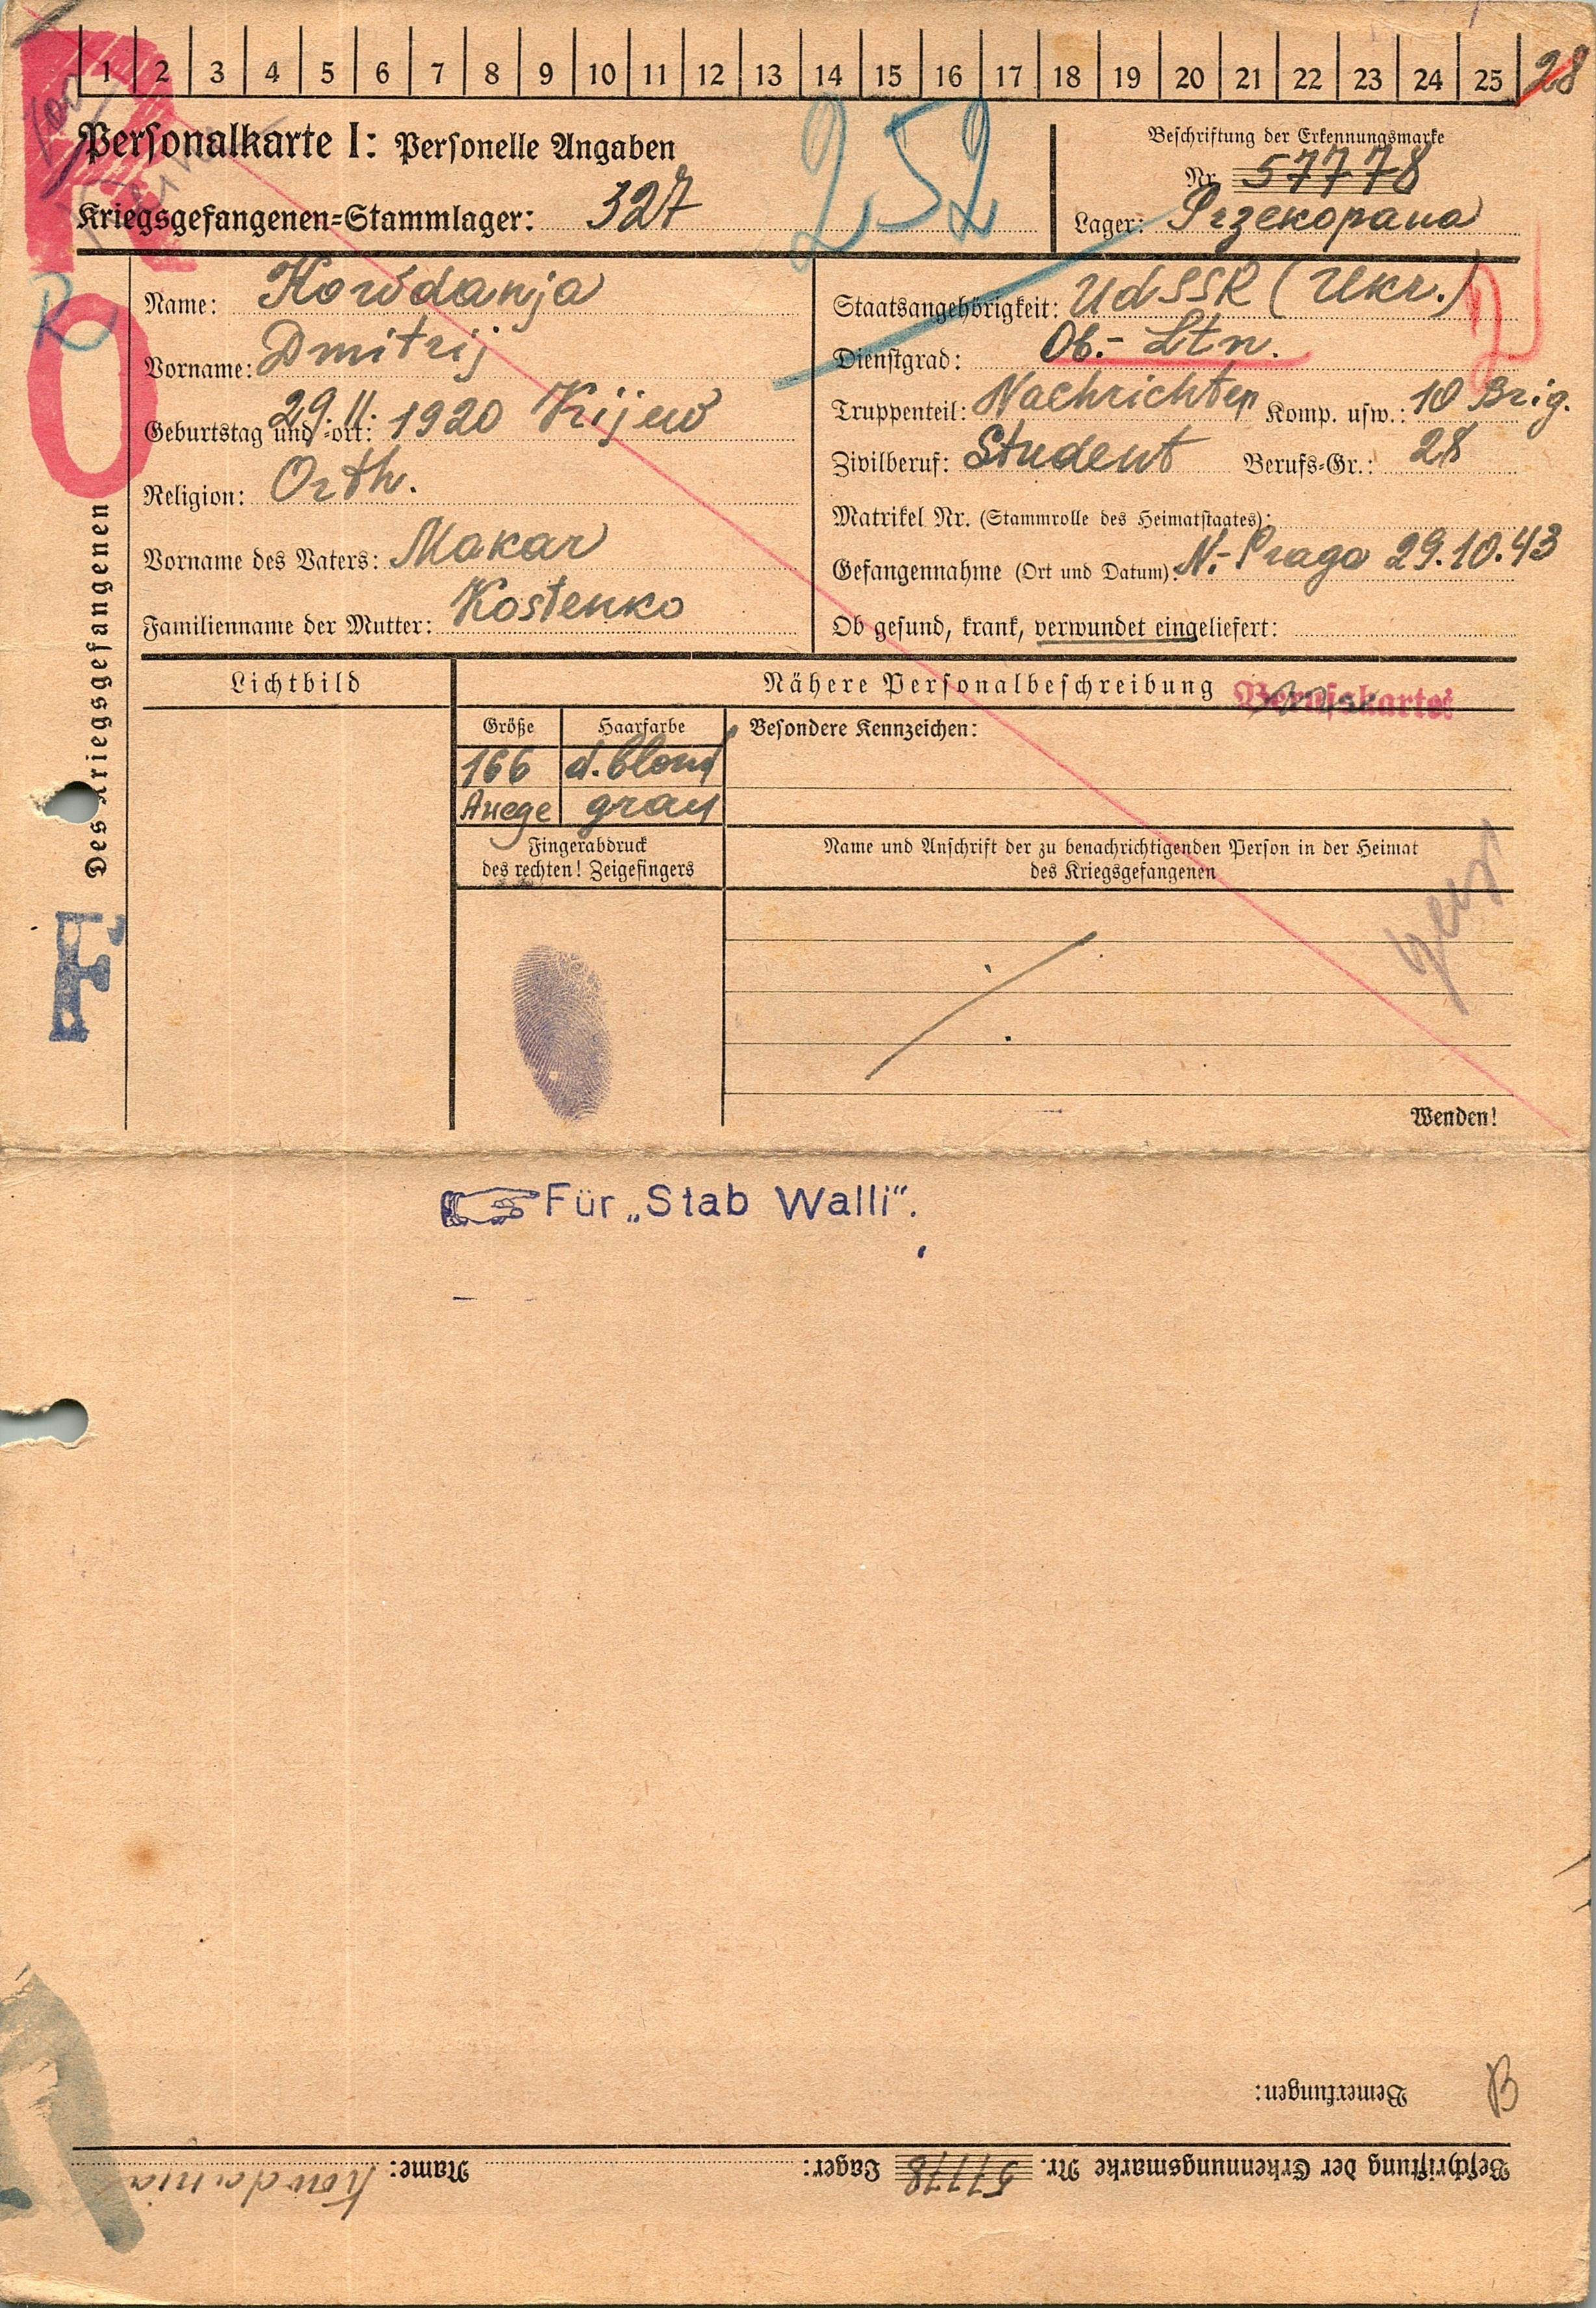 1 2 3 4 5 6 7 8 9 10 11 12 13 14 15 16 17 18 19 20 21 22 23 24 25 28
Personalkarte I: Personelle Angaben
Kriegsgefangenen-Stammlager: 327
252
Beschriftung der Erkennungsmarke
Nr. 57778
Lager: Przekopana
R
O
Des Kriegsgefangenen
F
Name: Kowdanja
Vorname: Dmitrij
Geburtstag und -ort: 29.11. 1920 Kijew
Religion: Orth.
Vorname des Vaters: Makar
Familienname der Mutter: Kostenko
Staatsangehörigkeit: UdSSR (Ukr.)
Dienstgrad: Ob.- Ltn.
Truppenteil: Nachrichten Komp. usw.: 10 Brig.
Zivilberuf: Student Berufs-Gr.: 28
Matrikel Nr. (Stammrolle des Heimatstaates):
Gefangennahme (Ort und Datum): N.- Praga 29.10.43
Ob gesund, krank, verwundet eingeliefert:
Lichtbild
Nähere Personalbeschreibung
Berufskartei
Größe Haarfarbe Besondere Kennzeichen:
166 d. blond
Auege grau
Fingerabdruck
des rechten! Zeigefingers
Name und Anschrift der zu benachrichtigenden Person in der Heimat
des Kriegsgefangenen
Wenden!
Für „Stab Walli“.
Bemerkungen:
B
Beschriftung der Erkennungsmarke Nr. 57778 Lager: Name: Kowdania